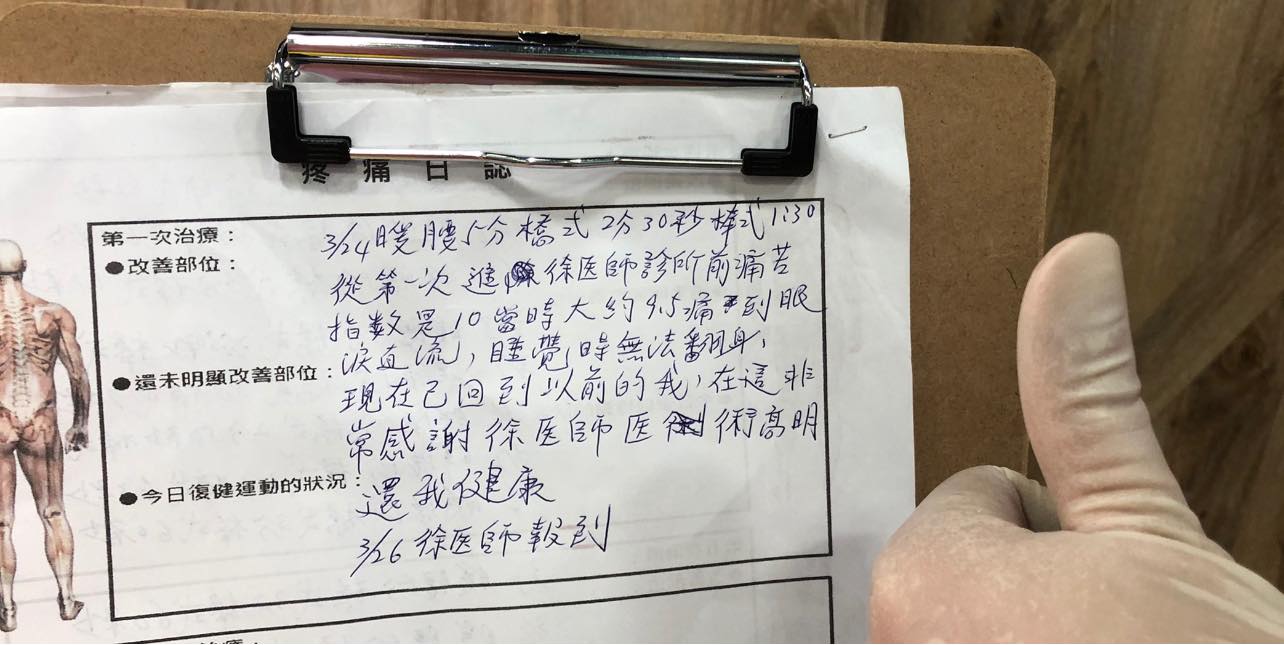 疼痛日誌
第一次治療：
●改善部位：
3/24 腰5分 橋式 2分30秒 棒式 1:30
從第一次進 徐医師診所前痛苦
指数是10當時大約9.5痛 到眼
淚直流，睡覺時無法翻身，
●還未明顯改善部位：
現在已回到以前的我，在這非
常感謝徐医師医 術高明
●今日復健運動的狀況：
還我健康
3/26 徐医師報到